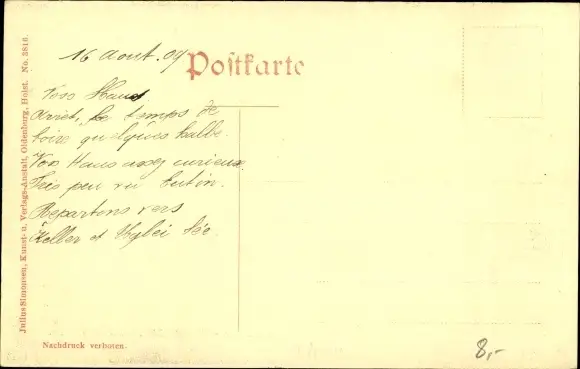 16 Aout. 09
Postkarte
Voss Haus
Arrêt, le temps de
boire quelques halbe.
Voss Haus assez curieux.
Très peu vu Eutin.
Repartons vers
Keller et Uglei Sée.
Julius Simonsen, Kunst- u. Verlags-Anstalt, Oldenburg, Holst. No. 3818.
Nachdruck verboten.
8,-